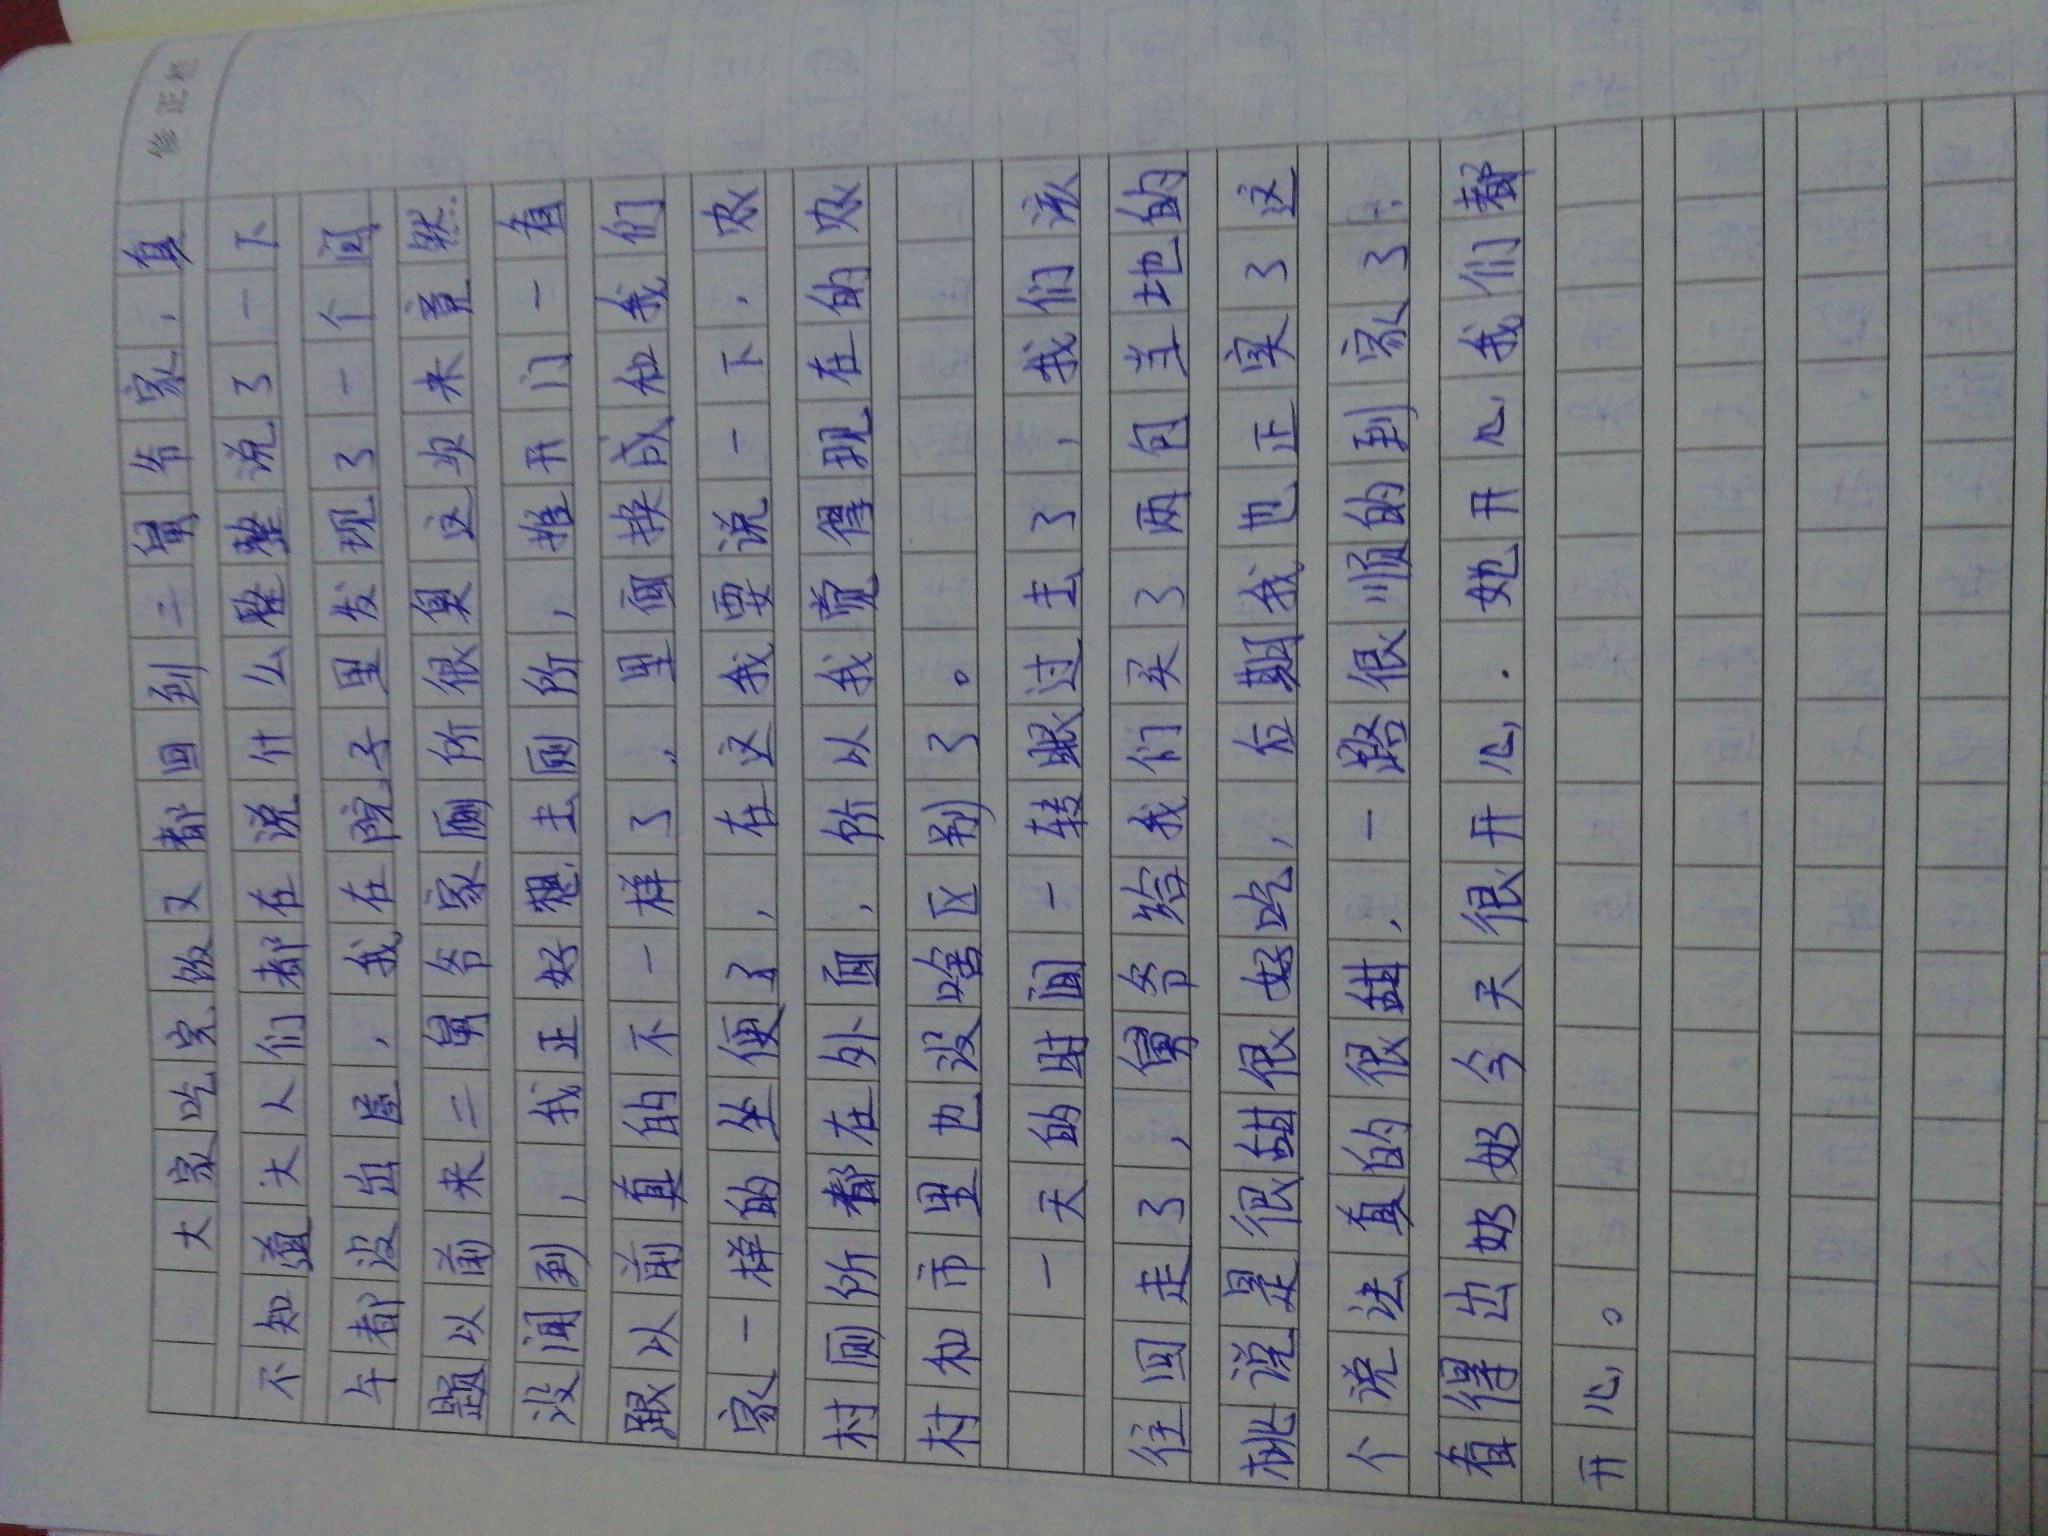 修正栏
大家吃完饭又都回到二舅爷家，真
不知道大人们都在说什么整整说了一下
午都没出屋，我在院子里发现了一个问
题以前来二舅爷家厕所很臭这次来竟然
没闻到，我正好想上厕所，推开门一看
跟以前真的不一样了，里面换成和我们
家一样的坐便了，在这我要说一下，农
村厕所都在外面，所以我觉得现在的农
村和市里也没啥区别了。
一天的时间一转眼过去了，我们该
往回走了，舅爷给我们买了两包当地的
桃说是很甜很好吃，后期我也证实了这
个说法真的很甜，一路很顺的到家了.
看得出奶奶今天很开心.她开心我们都
开心。